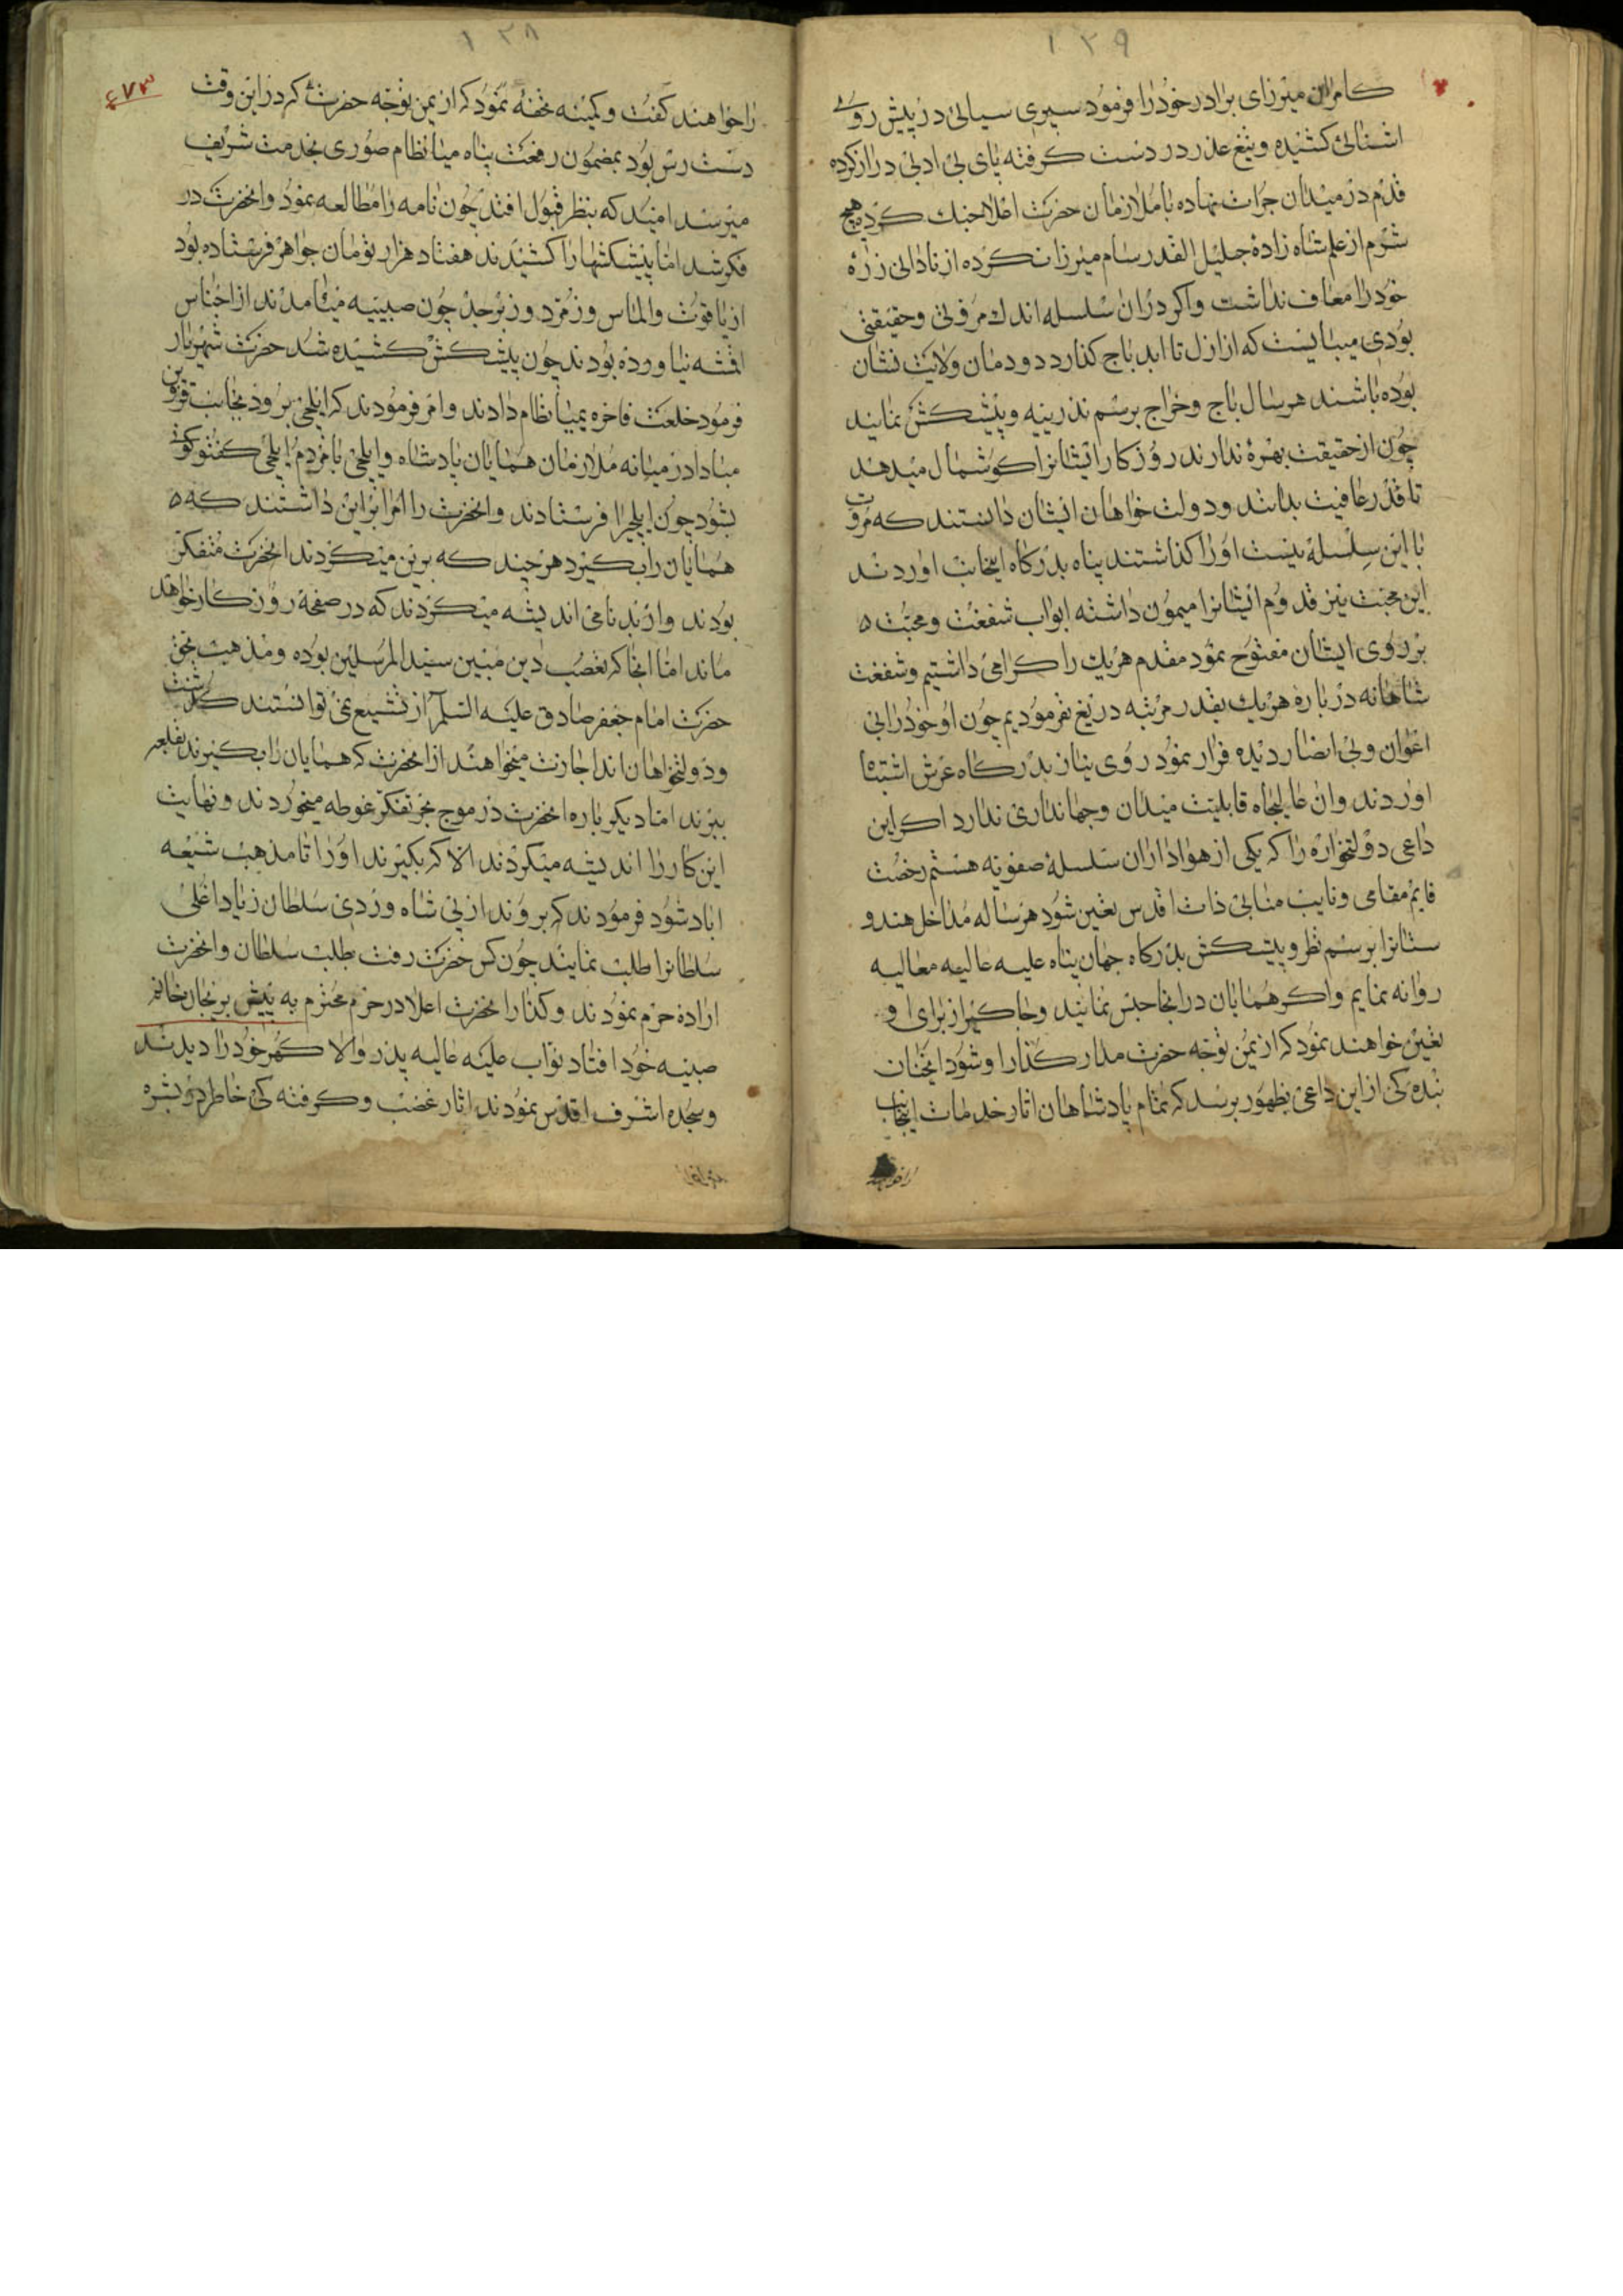 ۱۲۹
کامران میرزای برادر خود را فرمود سپری سیالی در پیش روی
اشنائی کشیده و تیغ عذر در دست کرفته پای بی ادبی دراز کرده
قدم در میدان جرات نهاده با ملازمان حضرت اعلا جنك کرده هیچ
شرم از علم شاه زاده جلیل القدر سام میرزا نکرده از نادانی
خود را معاف نداشت واکر دران سلسله اندك مروتی وحقیقتی
بودی میبایست که از ازل تا ابد باج کذارد دودمان ولایت نشان
بوده باشند هر سال باج وخراج برسم نذرینه وپیشکش نمایند
چون از حقیقت بهره ندارند روزکار ایشانرا کوشمال میدهد
تا قدر عافیت بدانند ودولت خواهان ایشان دانستند که مروت
با این سلسله نیست او را کذاشتند پناه بدرکاه اینجانب اوردند
این محبت نیز قدوم ایشانرا میمون داشته ابواب شفقت ومحبت ه
بر روی ایشان مفتوح نمود مقدم هریك را کرامی داشتیم وشفقت
شاهانه در باره هریك بقدر مرتبه دریغ نفرمودیم چون او خود را بی
اعوان وبی انصار دیده فرار نمود روی نیاز بدرکاه عرش اشتباه
اوردند وان عالیجاه قابلیت میدان وجهانداری ندارد اکر این
داعی دولتخواره را که یکی از هواداران سلسله صفویه هستم رخصت
قایم مقامی ونایب منابی ذات اقدس تعین شود هر ساله مداخل هندو
ستانرا برسم نظر وپیشکش بدرکاه جهان پناه علیه عالیه معالیه
روانه نمایم واکر همایان در انجا حبس نمایند وجاکیر از برای او
تعین خواهند نمود که از یمن توجه حضرت مدار کذار او شود انچنان
بنده کی از این داعی بظهور برسد که تمام پادشاهان اثار خدمات اینجانب
۱۲۸
۴۷۳
را خواهند کفت وکمینه تحفه نمود که از یمن توجه حضرت که در این وقت
دست رس بود بمضمون رفعت پناه میانظام صوری بخدمت شریف
میرسد امید که بنظر قبول افتد چون نامه را مطالعه نمود وانحضرت در
فکر شد اما پیشکشها را کشیدند هفتاد هزار تومان جواهر فرستاده بود
از یاقوت والماس وزمرد وزبرجد چون صبیه میامدند از اجناس
اقمشه نیاورده بودند چون پیشکش کشیده شد حضرت شهریار
فرمود خلعت فاخره بمیانظام دادند وامر فرمودند که ایلچی برود بجانب قزوین
مبادا در میانه ملازمان همایان پادشاه وایلچی با مردم ایلچی کفتوکوئی
بشود چون ایلچیرا فرستادند وانحضرت را امرا براین داشتند که ه
همایان را بکیرد هر چند که برین میکردند انحضرت متفکر
بودند واز بدنامی اندیشه میکردند که در صفحه روزکار خواهد
ماند اما انجا که تعصب دین مبین سید المرسلین بوده ومذهب بحق
حضرت امام جعفر صادق علیه السلم از تشیع نمی توانستند کذشت
ودولتخواهان اند اجازت میخواهند از انحضرت که همایان را بکیرند بقلعه
ببرند اما دیکر باره انحضرت در موج بحر تفکر غوطه میخوردند ونهایت
این کار را اندیشه میکردند الا که بکیرند او را تا مذهب شیعه
اباد شود فرمودند که بروند از پی شاه وردی سلطان زیاد اغلی
سلطانرا طلب نمایند چون کس حضرت رفت بطلب سلطان وانحضرت
اراده حرم نمودند وکذار انحضرت اعلا در حرم محترم به پیش پریخان خانم
صبیه خود افتاد نواب علیه عالیه پدر والا کهر خود را دیدند
وسجده اشرف اقدس نمودند اثار غضب وکرفته کی خاطر در بشره